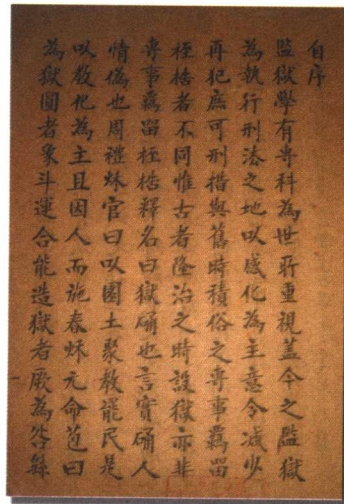 自序
監獄學有專科為世所重視蓋今之監獄
為執行刑法之地以感化為主意令減少
再犯庶可刑措與舊時積俗之專事羈留
桎梏者不同惟古者隆治之時設獄亦非
專事羈留桎梏釋名曰獄确也言實确人
情偽也周禮秋官曰以圜土聚教罷民是
以教化為主且因人而施春秋元命苞曰
為獄圜者象斗運合能造獄者厥為咎繇